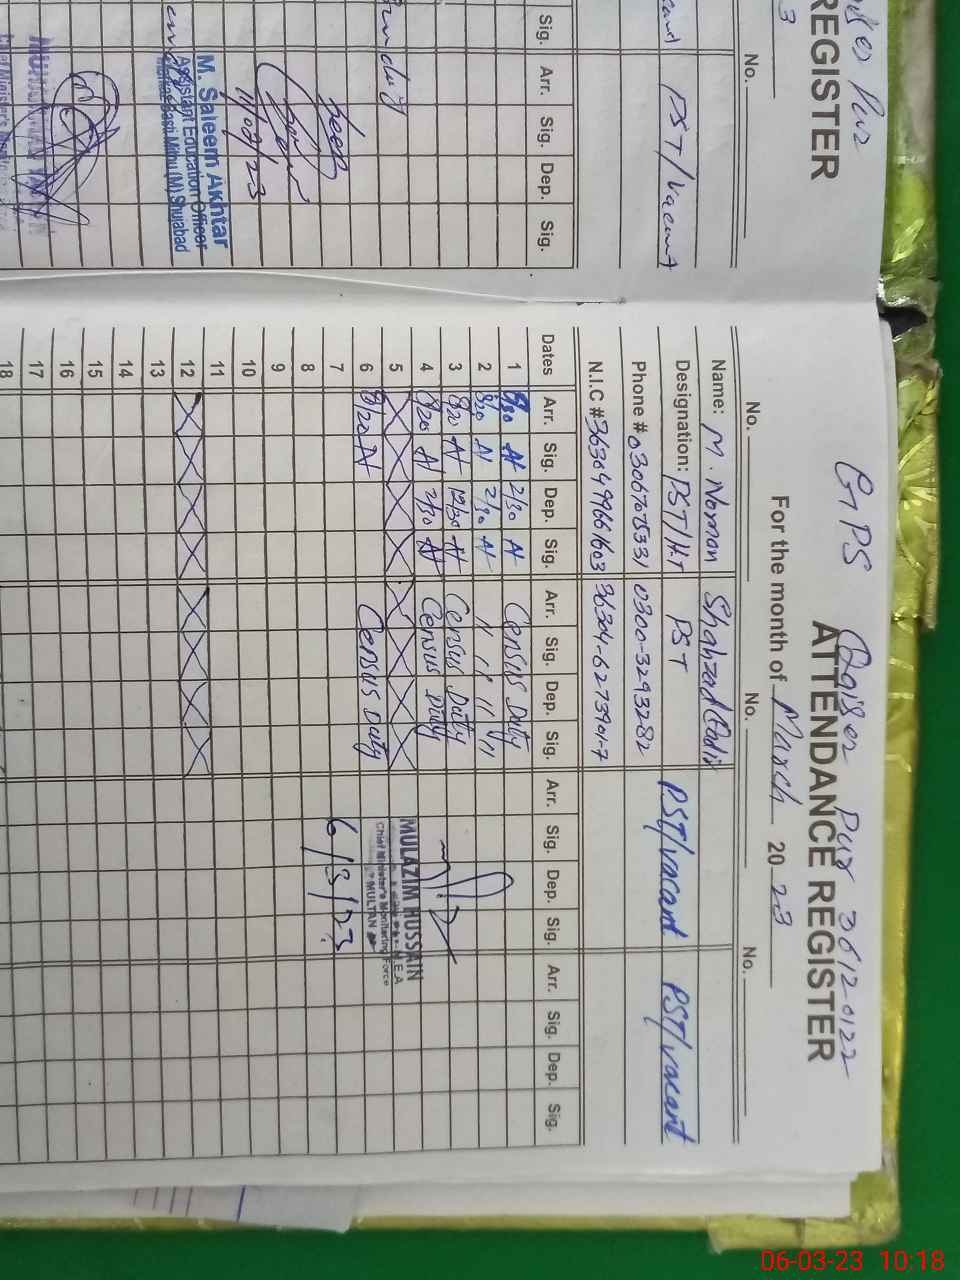 REGISTER
No.
PST/Vacant
Sig. Arr. Sig. Dep. Sig.
M. Saleem Akhtar
Assistant Education Officer
Markaz Basti Mithu (M) Shujabad
GPS Qaiser Pur 3612-0122
ATTENDANCE REGISTER
For the month of March 20 23
No. No. No.
Name: M. Noman Shahzad Qadir
Designation: PST/H.T PST PST/vacant PST/vacant
Phone # 0300-3293282
N.I.C # 36304-6273901-7
Dates Arr. Sig. Dep. Sig. Arr. Sig. Dep. Sig. Arr. Sig. Dep. Sig. Arr. Sig. Dep. Sig.
1 8/30 2/30 Census Duty
2 8/20 2/30 11 11 11 11
3 8/20 12/30 Census Duty
4 8/20 2/30 Census Duty
5
6 8/20 Census Duty
7
8
9
10
11
12
13
14
15
16
17
18
MULAZIM HUSSAIN
M.E.A
Chief Minister's Monitoring Force
MULTAN
6/3/23
06-03-23 10:18